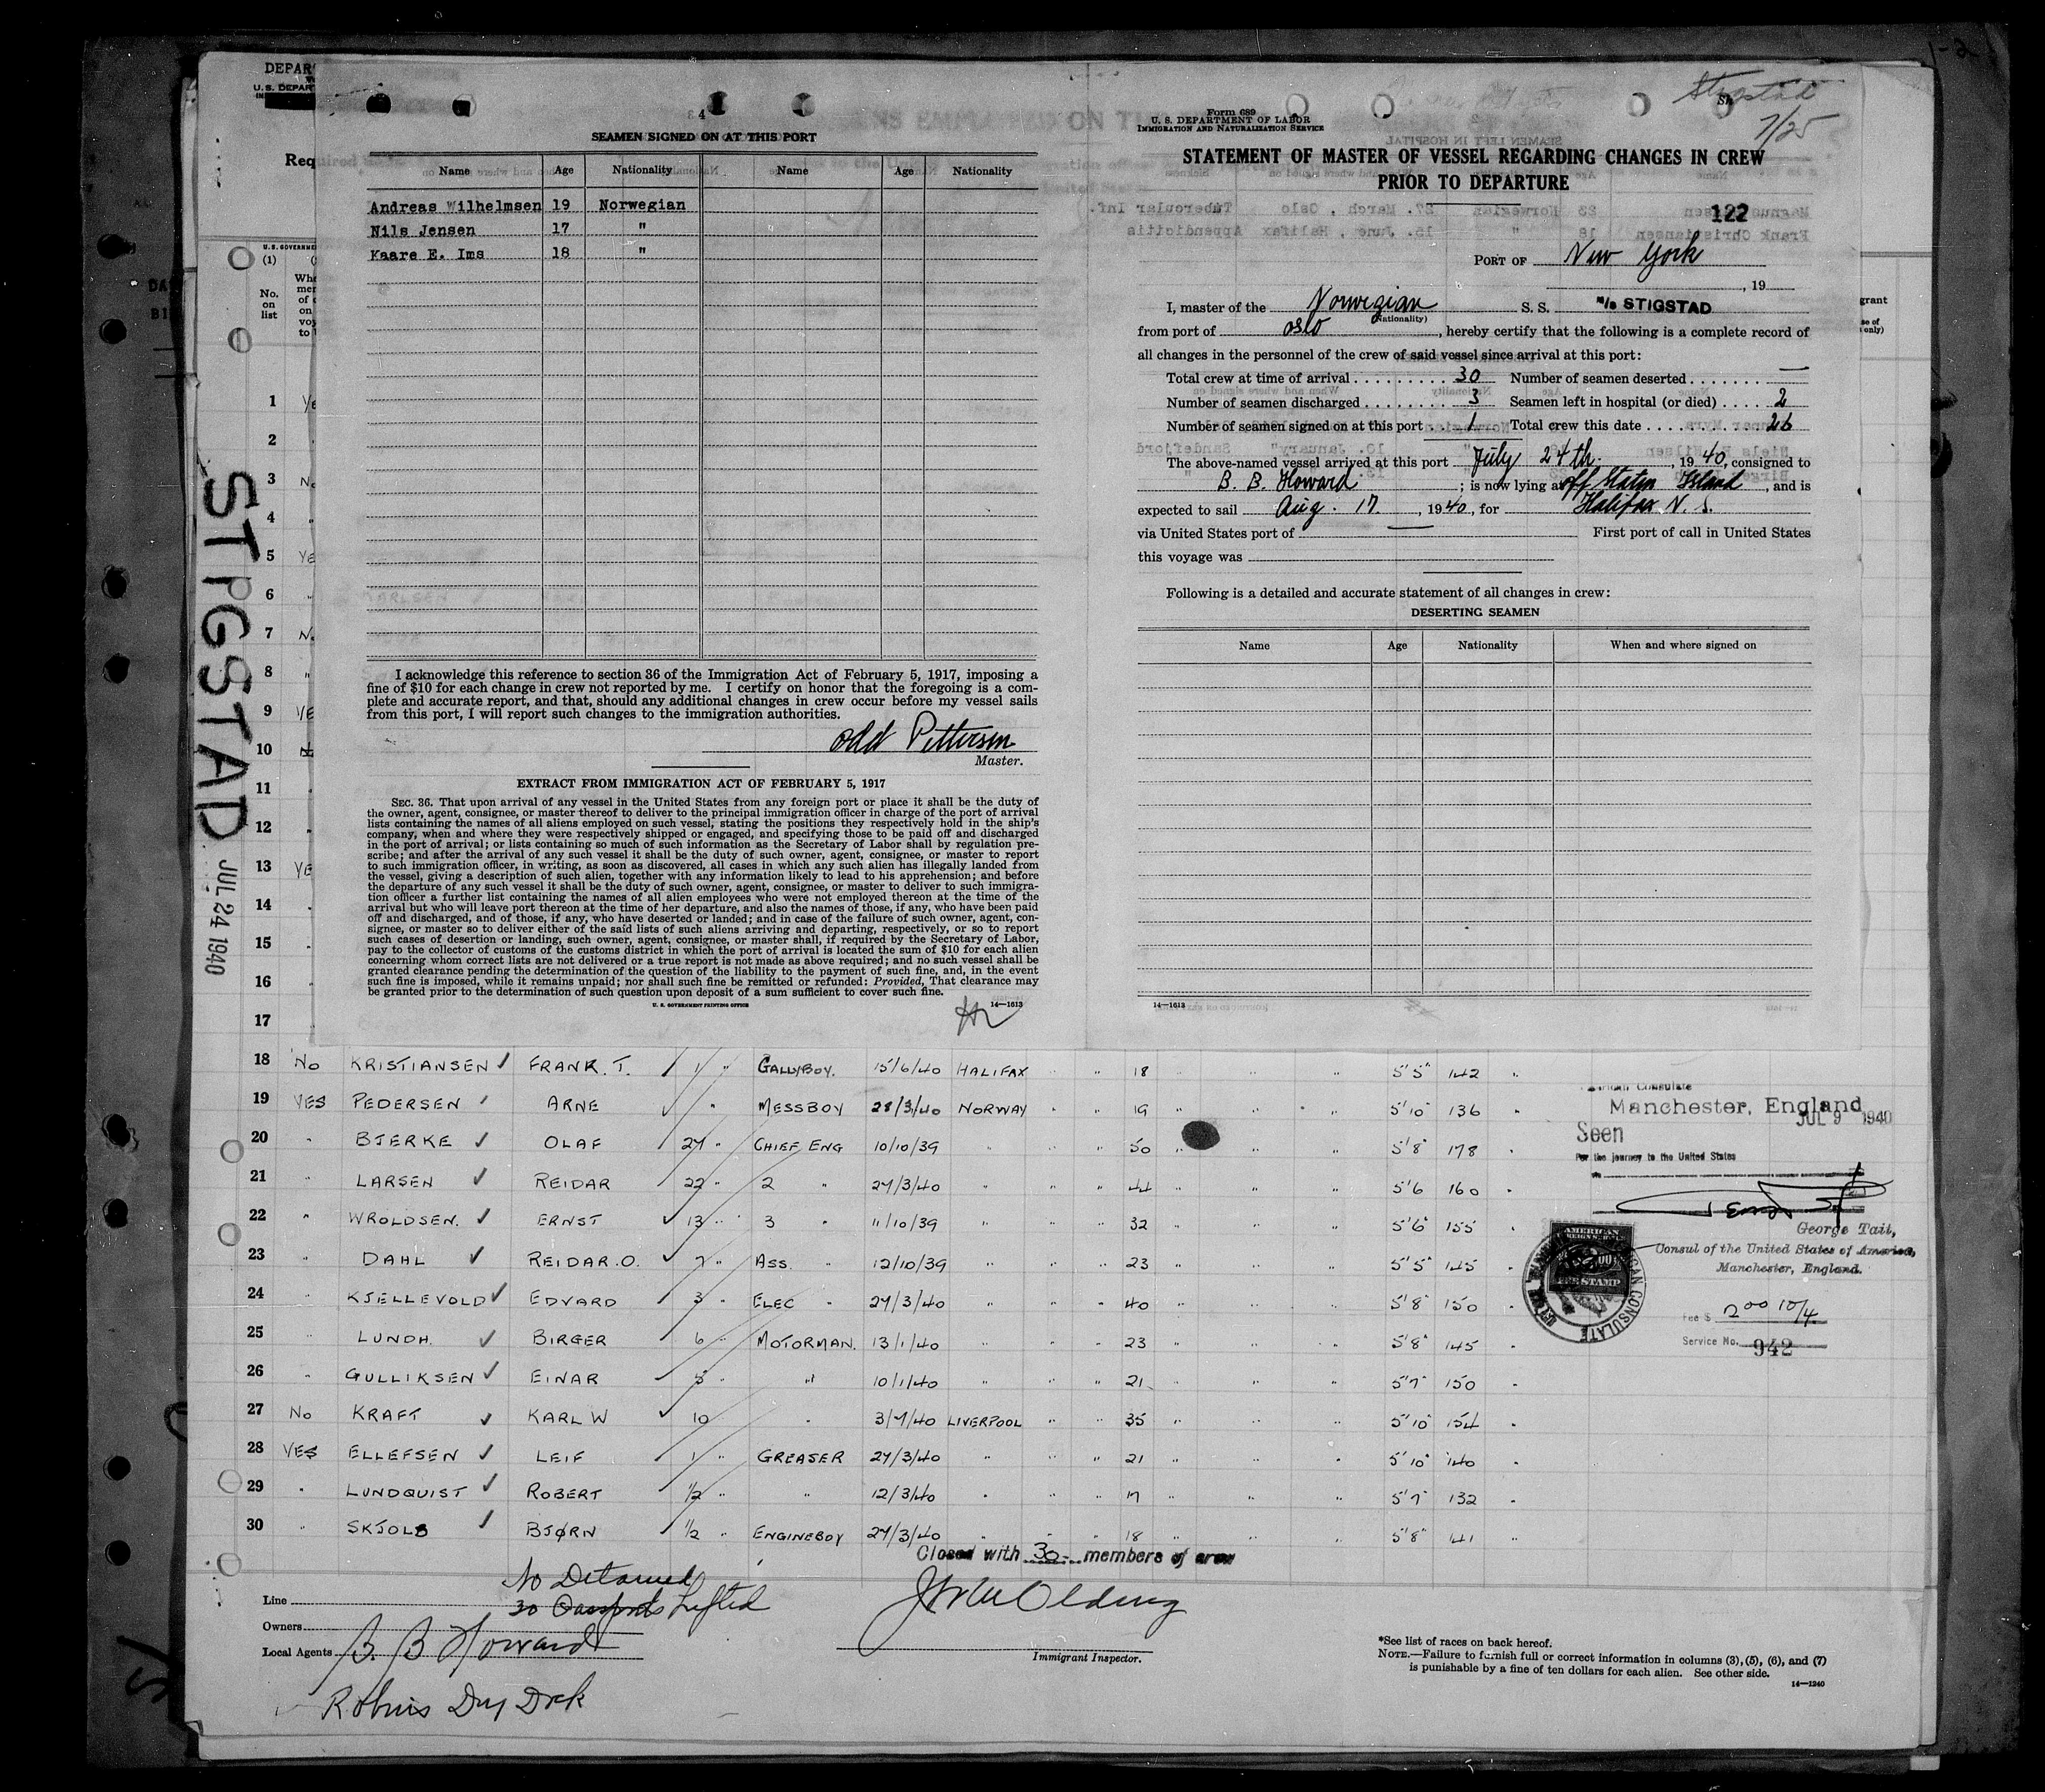 DEPAR
U. S. DEPAR
Req
U. S. GOVERNME
(1)
No.
on
list
STIGSTAD
JUL 24 1940
1
2
3
4
5
6
7
8
9
10
11
12
13
14
15
16
17
4
SEAMEN SIGNED ON AT THIS PORT
Name Age Nationality Name Age Nationality
Andreas Wilhelmsen 19 Norwegian
Nils Jensen 17 "
Kaare E. Ims 18 "
I acknowledge this reference to section 36 of the Immigration Act of February 5, 1917, imposing a
fine of $10 for each change in crew not reported by me. I certify on honor that the foregoing is a com-
plete and accurate report, and that, should any additional changes in crew occur before my vessel sails
from this port, I will report such changes to the immigration authorities.
Odd Pettersen
Master.
EXTRACT FROM IMMIGRATION ACT OF FEBRUARY 5, 1917
SEC. 36. That upon arrival of any vessel in the United States from any foreign port or place it shall be the duty of
the owner, agent, consignee, or master thereof to deliver to the principal immigration officer in charge of the port of arrival
lists containing the names of all aliens employed on such vessel, stating the positions they respectively hold in the ship's
company, when and where they were respectively shipped or engaged, and specifying those to be paid off and discharged
in the port of arrival; or lists containing so much of such information as the Secretary of Labor shall by regulation pre-
scribe; and after the arrival of any such vessel it shall be the duty of such owner, agent, consignee, or master to report
to such immigration officer, in writing, as soon as discovered, all cases in which any such alien has illegally landed from
the vessel, giving a description of such alien, together with any information likely to lead to his apprehension; and before
the departure of any such vessel it shall be the duty of such owner, agent, consignee, or master to deliver to such immigra-
tion officer a further list containing the names of all alien employees who were not employed thereon at the time of the
arrival but who will leave port thereon at the time of her departure, and also the names of those, if any, who have been paid
off and discharged, and of those, if any, who have deserted or landed; and in case of the failure of such owner, agent, con-
signee, or master so to deliver either of the said lists of such aliens arriving and departing, respectively, or so to report
such cases of desertion or landing, such owner, agent, consignee, or master shall, if required by the Secretary of Labor,
pay to the collector of customs of the customs district in which the port of arrival is located the sum of $10 for each alien
concerning whom correct lists are not delivered or a true report is not made as above required; and no such vessel shall be
granted clearance pending the determination of the question of the liability to the payment of such fine, and, in the event
such fine is imposed, while it remains unpaid; nor shall such fine be remitted or refunded: Provided, That clearance may
be granted prior to the determination of such question upon deposit of a sum sufficient to cover such fine.
U. S. GOVERNMENT PRINTING OFFICE 14—1613
Stigstad
7/25
Form 689
U. S. DEPARTMENT OF LABOR
IMMIGRATION AND NATURALIZATION SERVICE
STATEMENT OF MASTER OF VESSEL REGARDING CHANGES IN CREW
PRIOR TO DEPARTURE
122
PORT OF New York
, 19
I, master of the Norwegian S. S. M/S STIGSTAD
(Nationality)
from port of Oslo, hereby certify that the following is a complete record of
all changes in the personnel of the crew of said vessel since arrival at this port:
Total crew at time of arrival 30 Number of seamen deserted —
Number of seamen discharged 3 Seamen left in hospital (or died) 2
Number of seamen signed on at this port 1 Total crew this date 26
The above-named vessel arrived at this port July 24th, 1940, consigned to
B. B. Howard; is now lying at off Staten Island, and is
expected to sail Aug. 17, 1940, for Halifax N. S.
via United States port of — First port of call in United States
this voyage was
Following is a detailed and accurate statement of all changes in crew:
DESERTING SEAMEN
Name Age Nationality When and where signed on
14—1613
18 No KRISTIANSEN FRANK. T. 1 " GALLYBOY. 15/6/40 HALIFAX " " 18 " " " 5'5" 142 "
19 YES PEDERSEN ARNE " MESSBOY 28/3/40 NORWAY " " 19 " " " 5'10" 136 "
20 " BJERKE OLAF 27 " CHIEF ENG 10/10/39 " " " 50 " " " 5'8" 178 "
21 " LARSEN REIDAR 22 " 2 " 27/3/40 " " " 44 " " " 5'6 160 "
22 " WROLDSEN. ERNST 13 " 3 " 11/10/39 " " " 32 " " " 5'6" 155 "
23 " DAHL REIDAR.O. 7 " ASS. " 12/10/39 " " " 23 " " " 5'5" 145 "
24 " KJELLEVOLD EDVARD 3 " ELEC " 27/3/40 " " " 40 " " " 5'8" 150 "
25 " LUNDH. BIRGER 6 " MOTORMAN. 13/1/40 " " 23 " " " 5'8" 145 "
26 " GULLIKSEN EINAR 5 " " 10/1/40 " " " 21 " " " 5'7" 150 "
27 No KRAFT KARL W 10 " 3/7/40 LIVERPOOL " " 35 " " " 5'10" 154 "
28 YES ELLEFSEN LEIF 1 " GREASER 27/3/40 " " " 21 " " " 5'10" 140 "
29 " LUNDQUIST ROBERT 1/2 " " 12/3/40 " " " 17 " " " 5'7" 132 "
30 " SKJOLD BJØRN 1/2 " ENGINEBOY 27/3/40 " " " 18 " " " 5'8" 141 "
Closed with 30 members of crew
American Consulate
Manchester, England
JUL 9 1940
Seen
For the journey to the United States
George Tait,
Consul of the United States of America,
Manchester, England.
AMERICAN
FEE STAMP
AMERICAN CONSULATE
Fee $ 2.00 10/4
Service No. 942
No Detained
30 Passports Lifted
Line
Owners
Local Agents B. B Howard
Robins Dry Dock
Immigrant Inspector.
*See list of races on back hereof.
NOTE.—Failure to furnish full or correct information in columns (3), (5), (6), and (7)
is punishable by a fine of ten dollars for each alien. See other side.
14—1240